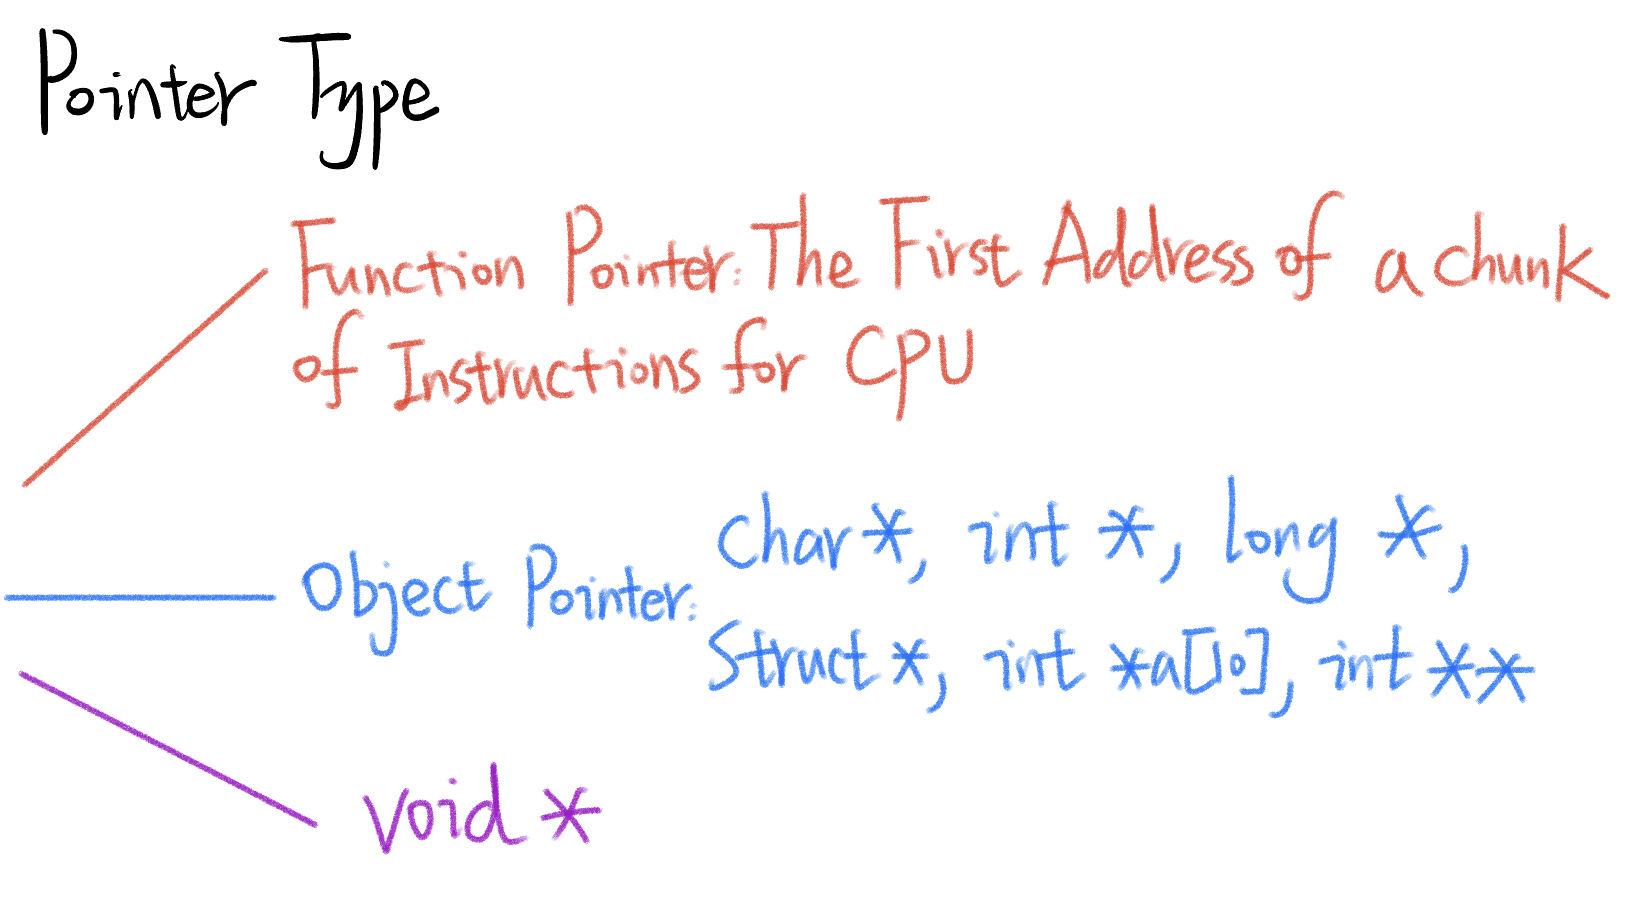 Pointer Type
Function Pointer: The First Address of a chunk
of Instructions for CPU
Object Pointer: char *, int *, long *,
Struct *, int *a[10], int **
void *